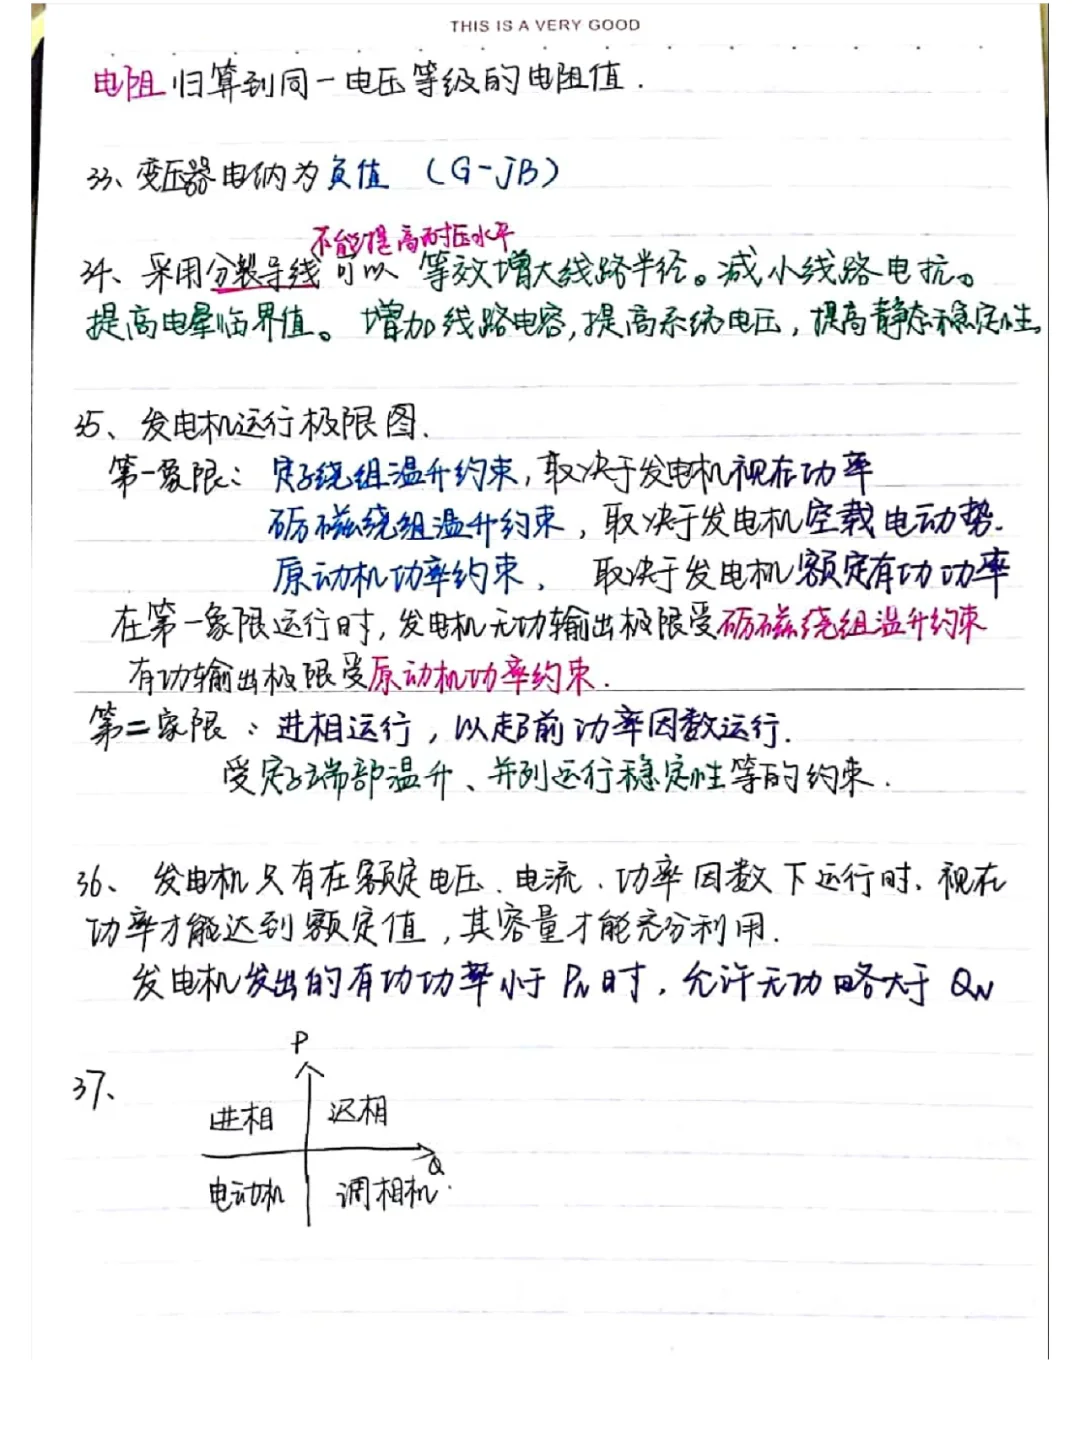 THIS IS A VERY GOOD
电阻归算到同一电压等级的电阻值.
33、变压器电纳为负值 (G-jB)
不能提高耐压水平
34、采用分裂导线可以 等效增大线路半径。减小线路电抗。
提高电晕临界值。增加线路电容,提高系统电压,提高静态稳定性。
35、发电机运行极限图.
第一象限: 定子绕组温升约束,取决于发电机视在功率
励磁绕组温升约束,取决于发电机空载电动势.
原动机功率约束, 取决于发电机额定有功功率
在第一象限运行时,发电机无功输出极限受励磁绕组温升约束
有功输出极限受原动机功率约束.
第二象限: 进相运行,以超前功率因数运行.
受定子端部温升、并列运行稳定性等的约束.
36、发电机只有在额定电压、电流、功率因数下运行时、视在
功率才能达到额定值,其容量才能充分利用.
发电机发出的有功功率小于 PN 时,允许无功略大于 QN
P
37、
进相 迟相
Q
电动机 调相机.